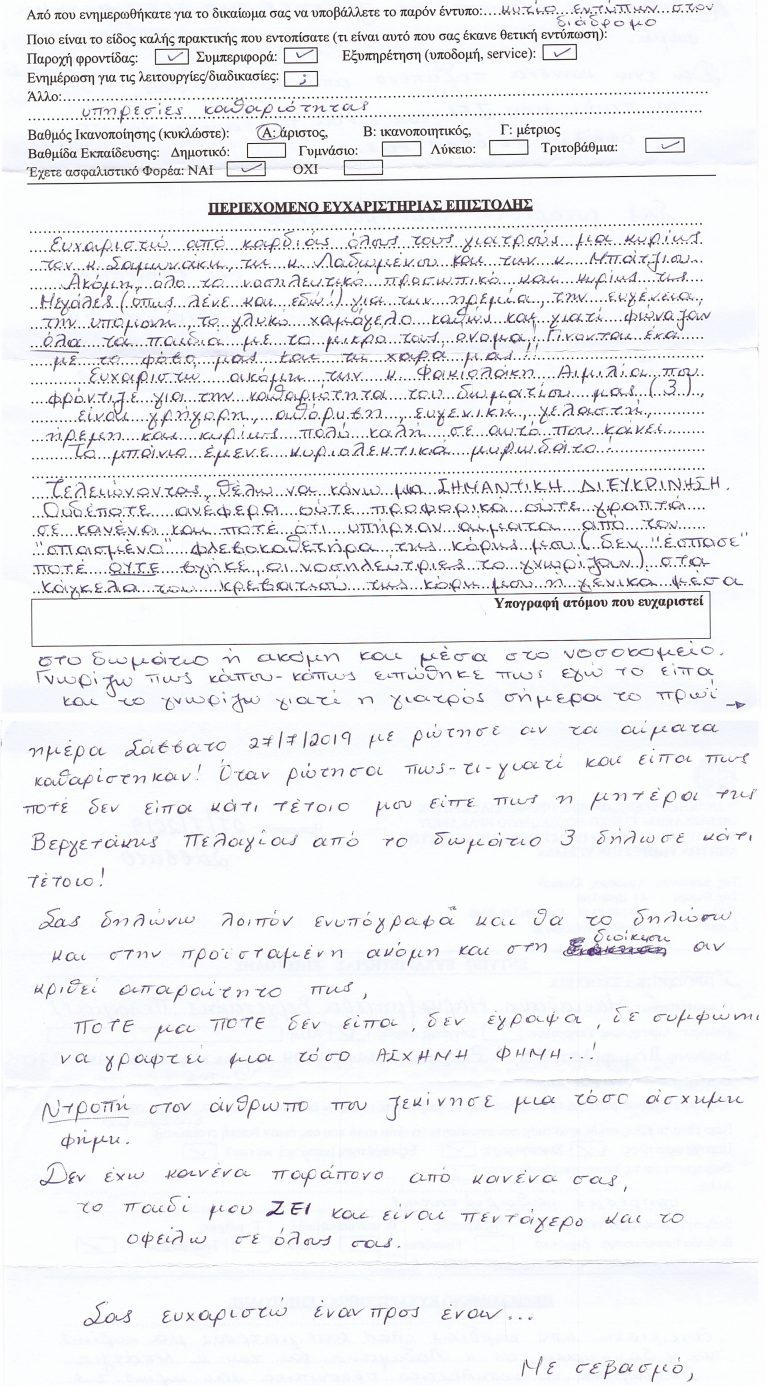 Από που ενημερωθήκατε για το δικαίωμα σας να υποβάλλετε το παρόν έντυπο: κυτίο εντύπων στον
διάδρομο
Ποιο είναι το είδος καλής πρακτικής που εντοπίσατε (τι είναι αυτό που σας έκανε θετική εντύπωση):
Παροχή φροντίδας: ✓ Συμπεριφορά: ✓ Εξυπηρέτηση (υποδομή, service): ✓
Ενημέρωση για τις λειτουργίες/διαδικασίες: ;
Άλλο:
υπηρεσίες καθαριότητας
Βαθμός Ικανοποίησης (κυκλώστε): Α: άριστος, Β: ικανοποιητικός, Γ: μέτριος
Βαθμίδα Εκπαίδευσης: Δημοτικό: Γυμνάσιο: Λύκειο: Τριτοβάθμια: ✓
Έχετε ασφαλιστικό Φορέα: ΝΑΙ ✓ ΟΧΙ
ΠΕΡΙΕΧΟΜΕΝΟ ΕΥΧΑΡΙΣΤΗΡΙΑΣ ΕΠΙΣΤΟΛΗΣ
Ευχαριστώ από καρδιάς όλους τους γιατρούς μα κυρίως
τον κ. Σαμωνάκη, τις κ. Λαδωμένου και την κ. Μπάτζιου.
Ακόμη, όλο το νοσηλευτικό προσωπικό και κυρίως τις
Μεγάλες (όπως λένε και εδώ!) για την ηρεμία, την ευγένεια,
την υπομονή, το γλυκό χαμόγελο καθώς και γιατί φώναζαν
όλα τα παιδιά με το μικρό τους όνομα. Γίνονται ένα
με το φόβο μας και τη χαρά μας!
Ευχαριστώ ακόμη την κ. Φακιολάκη Αιμιλία που
φρόντιζε για την καθαριότητα του δωματίου μας (3),
είναι γρήγορη, αθόρυβη, ευγενική, γελαστή,
ήρεμη και κυρίως πολύ καλή σε αυτό που κάνει.
Το μπάνιο έμενε κυριολεκτικά μυρωδάτο!
Τελειώνοντας, θέλω να κάνω μια ΣΗΜΑΝΤΙΚΗ ΔΙΕΥΚΡΙΝΗΣΗ.
Ουδέποτε ανέφερα ούτε προφορικά ούτε γραπτά
σε κανένα και ποτέ ότι υπήρχαν αίματα από τον
"σπασμένο" φλεβοκαθετήρα της κόρης μου (δεν "έσπασε"
ποτέ ΟΥΤΕ βγήκε, οι νοσηλεύτριες το γνωρίζουν) στα
κάγκελα του κρεβατιού της κόρη μου ή γενικά μέσα
Υπογραφή ατόμου που ευχαριστεί
στο δωμάτιο ή ακόμη και μέσα στο νοσοκομείο.
Γνωρίζω πως κάπου-κάπως ειπώθηκε πως εγώ το είπα
και το γνωρίζω γιατί η γιατρός σήμερα το πρωί →
ημέρα Σάββατο 27/7/2019 με ρώτησε αν τα αίματα
καθαρίστηκαν! Όταν ρώτησα πως-τι-γιατί και είπα πως
ποτέ δεν είπα κάτι τέτοιο μου είπε πως η μητέρα της
Βεργετάκης Πελαγίας από το δωμάτιο 3 δήλωσε κάτι
τέτοιο!
Σας δηλώνω λοιπόν ενυπόγραφα και θα το δηλώσω
και στην προϊσταμένη ακόμη και στη διοίκηση αν
κριθεί απαραίτητο πως,
ΠΟΤΕ μα ΠΟΤΕ δεν είπα, δεν έγραψα, δε συμφώνη
να γραφτεί μια τόσο ΑΣΧΗΜΗ ΦΗΜΗ..!
Ντροπή στον άνθρωπο που ξεκίνησε μια τόσο άσχημη
φήμη.
Δεν έχω κανένα παράπονο από κανένα σας,
το παιδί μου ΖΕΙ και είναι πεντάγερο και το
οφείλω σε όλους σας.
Σας ευχαριστώ έναν προς έναν...
Με σεβασμό,